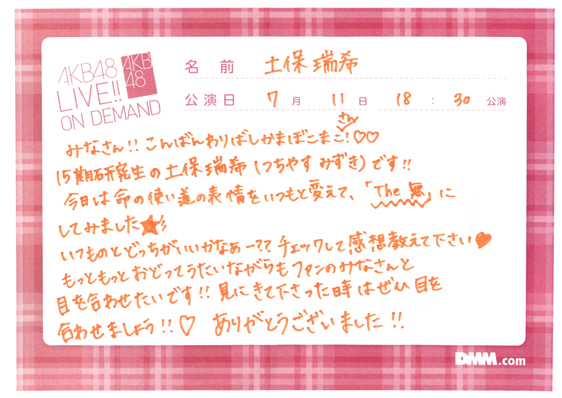 AKB48
LIVE!!
ON DEMAND
AKB
48
名 前 土保 瑞希
公演日 7 月 11 日 18 : 30 公演
みなさん!! こんばんわりばしかまぼこまこさん!♡♡
15期研究生の土保瑞希(つちやす みずき)です!!
今日は命の使い道の表情をいつもと変えて、「The 無」に
してみました★彡
いつものとどっちがいいかなぁー?? チェックして感想教えて下さい♥
もっともっとおどってうたいながらもファンのみなさんと
目を合わせたいです!! 見にきて下さった時はぜひ目を
合わせましょう!!♡ ありがとうございました!!
DMM.com